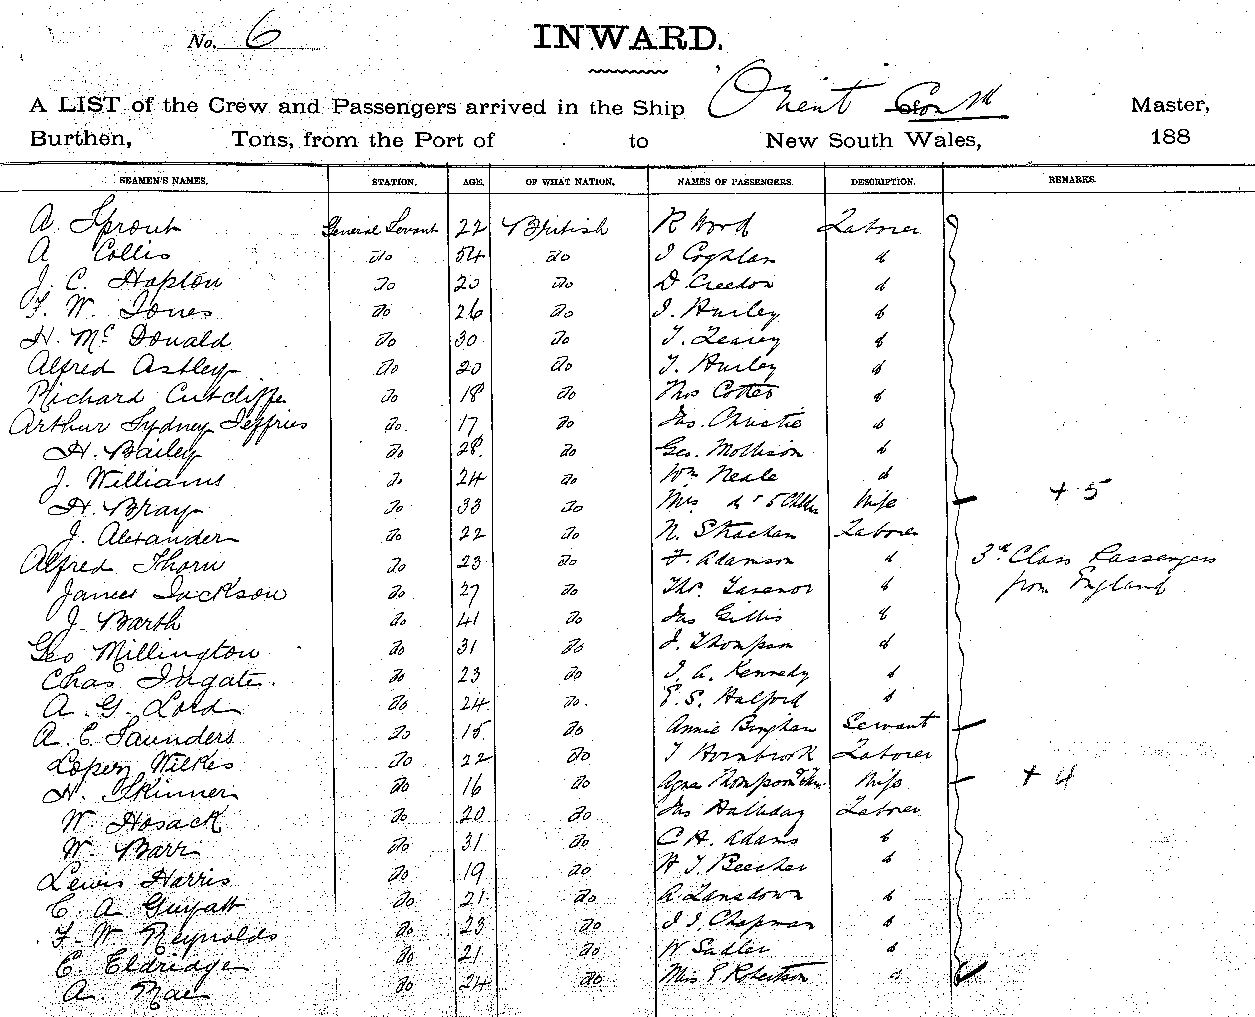 No. 6
INWARD.
A LIST of the Crew and Passengers arrived in the Ship Orient Master,
Burthen, Tons, from the Port of to New South Wales, 188
SEAMEN'S NAMES. STATION. AGE. OF WHAT NATION. NAMES OF PASSENGERS. DESCRIPTION. REMARKS.
A. Sprout General Servant 22 British R Word Laborer
A Collis Do 54 Do J Coghlan d
J. C. Hapton Do 20 Do D Creedon d
F. W. Jones Do 26 Do J. Hurley d
H. Mc Donald Do 30 Do T. Leary d
Alfred Astley Do 20 Do T. Hurley d
Richard Cutcliffe Do 18 Do Thos Cotter d
Arthur Sydney Jeffries Do 17 Do Jas. Christie d
H. Bailey Do 28 Do Geo. Mollison d
J. Williams Do 24 Do Wm Neale d
H. Bray Do 33 Do Mrs d 5 Wife + 5
J. Alexander Do 22 Do N. Strachan Laborer
Alfred Thorn Do 23 Do F. Adamson d 3rd Class Passengers
James Jackson Do 27 Do Thos. d from England
J. Barth Do 41 Do Jas Gillis d
Geo Millington Do 31 Do J. Thompson d
Chas Ingate. Do 23 Do J. A. Kennedy d
A. G. Lord Do 24 Do. E. S. Halford d
A. E. Saunders Do 15 Do Annie Bingham Servant
Wilkes Do 22 Do T Hornbrook Laborer
H. Skinner Do 16 Do Agnes Thompson Wife + 4
W. Hosack Do 20 Do Jas Halliday Laborer
W. Barr Do 31 Do C H. Adams d
Lewis Harris Do 19 Do H J. Beecher d
C. A Guyatt Do 21 Do A. Lansdown d
F. W. Reynolds Do 23 Do J J. Chapman d
E. Eldridge Do 21 Do W Sadler d
A. Rae Do 24 Do Miss E Robertson d